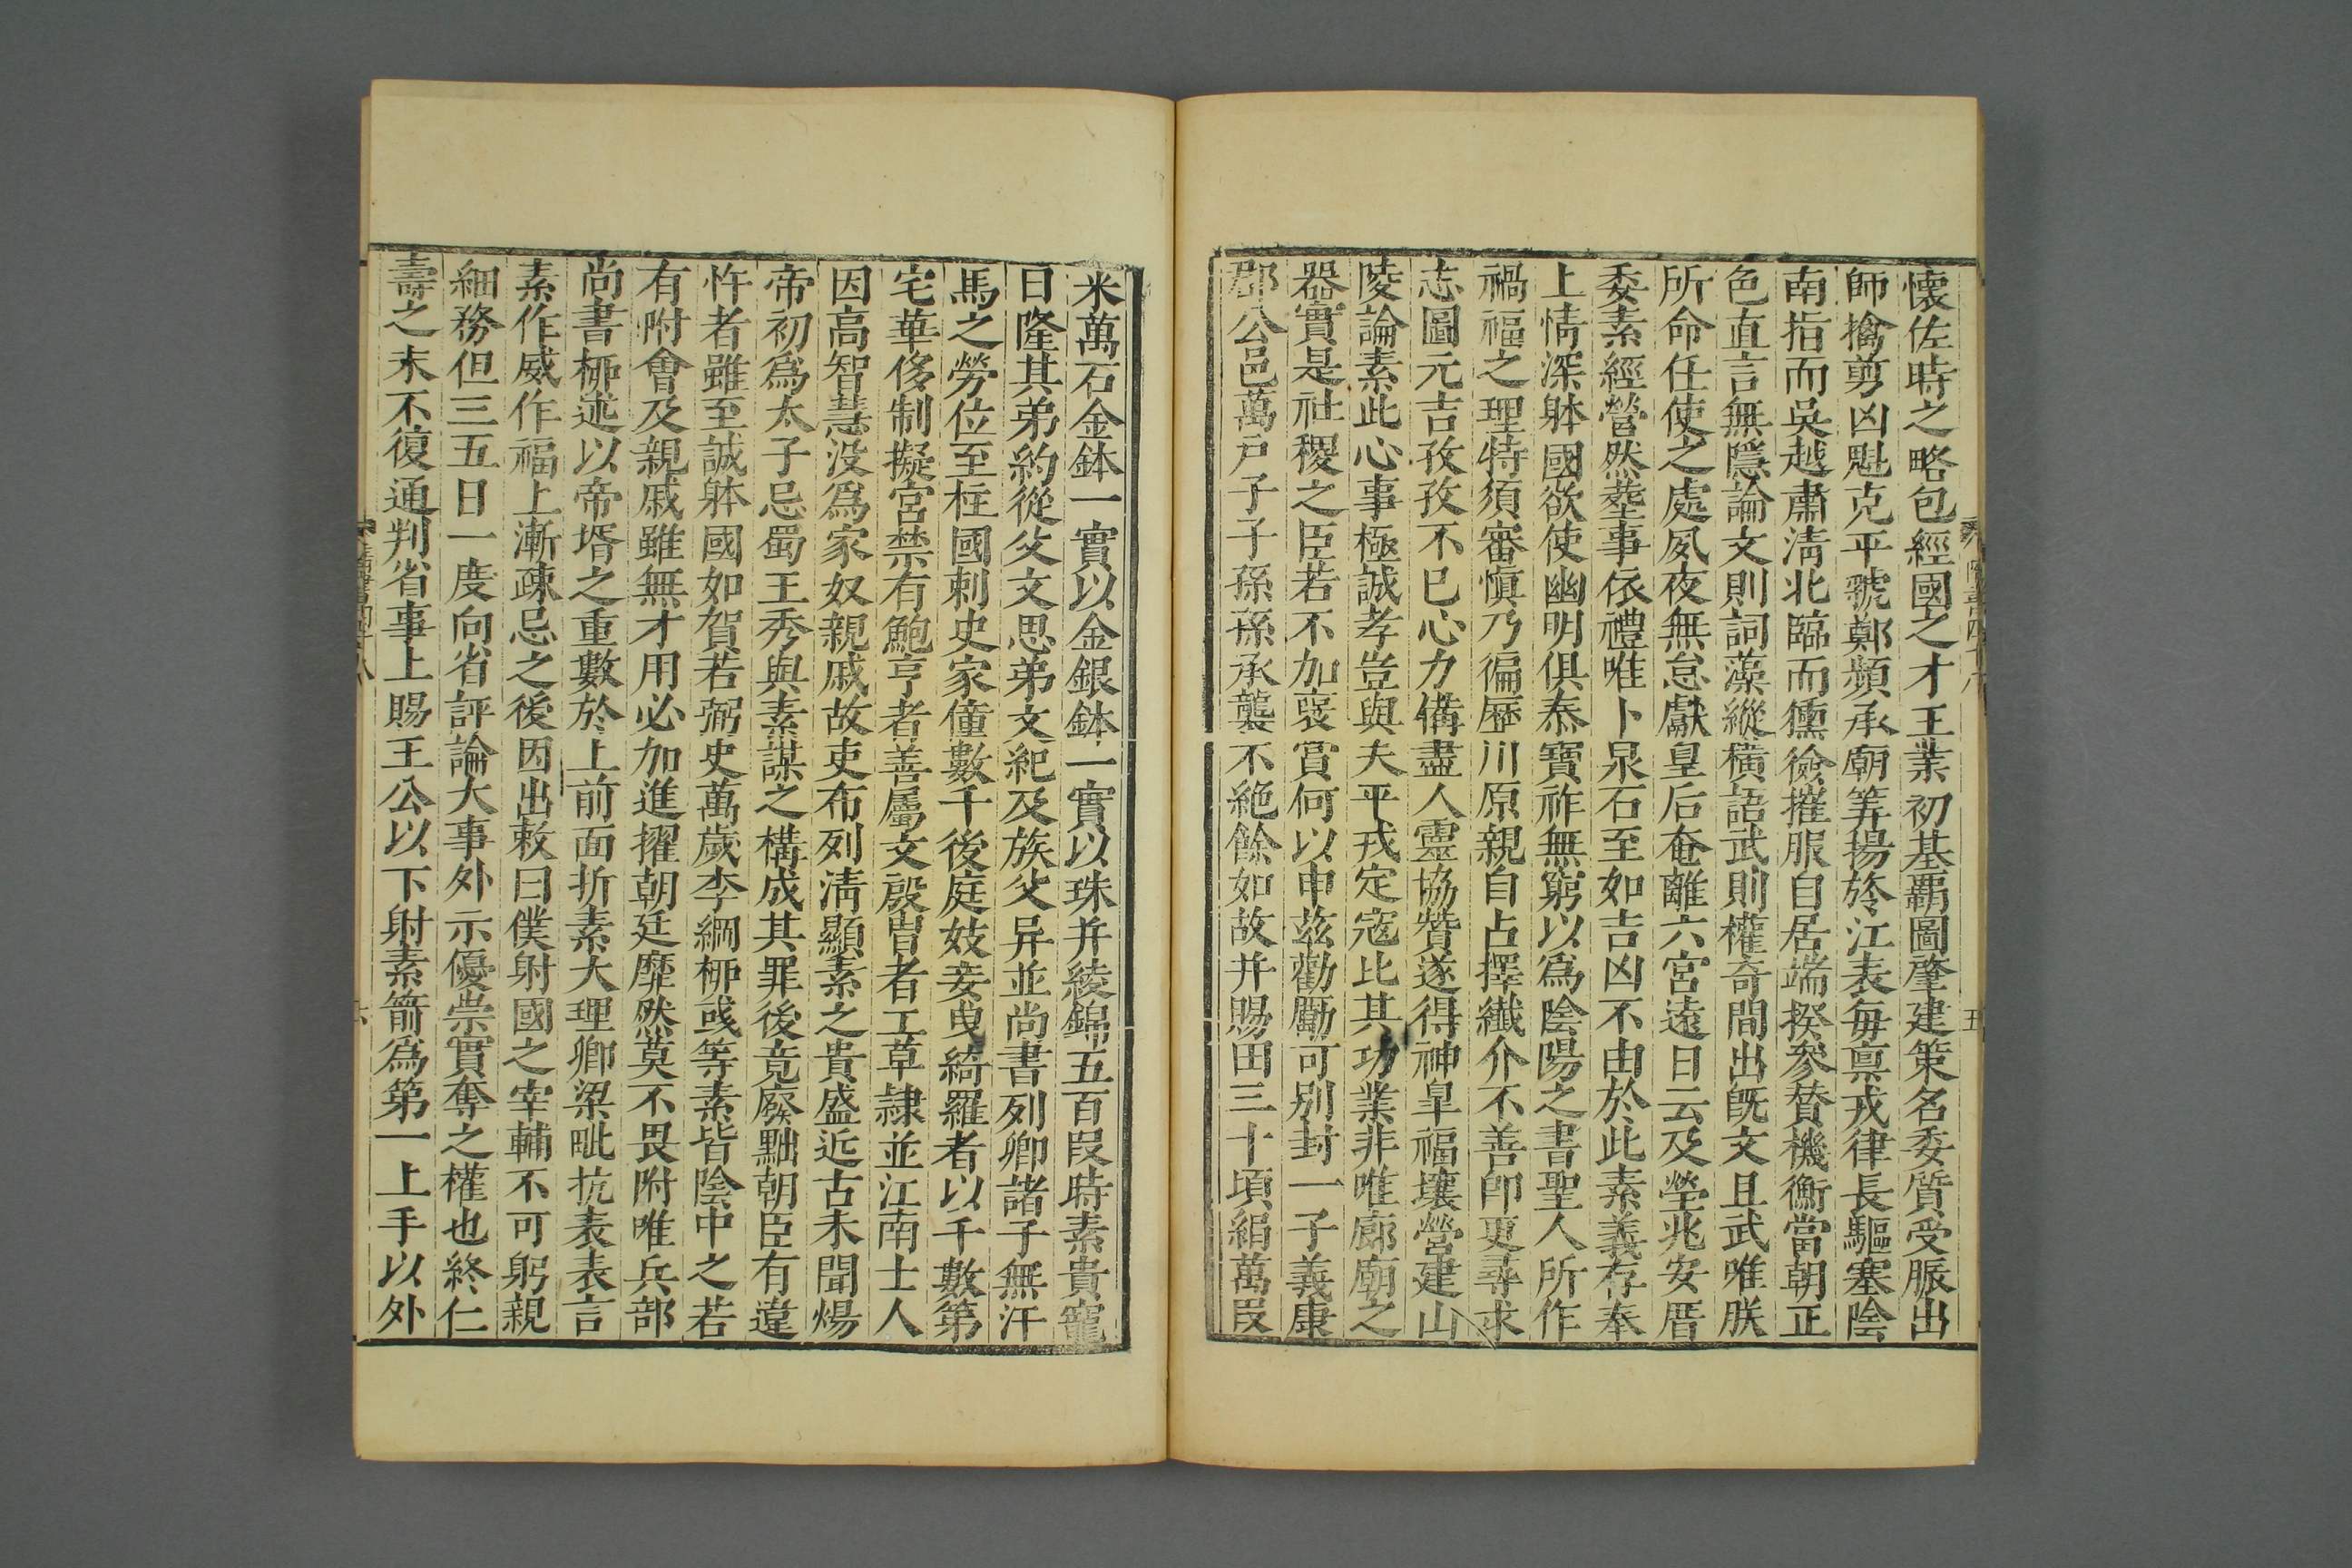 懷佐時之略包經國之才王業初基覇圖肇建策名委質受脤出
師擒剪凶魁克平虢鄭頻承廟筭揚旍江表每禀戎律長驅塞陰
南指而吳越肅清北臨而獯獫摧服自居端揆參賛機衡當朝正
色直言無隱論文則詞藻縱橫語武則權竒間出旣文且武唯朕
所命任使之處夙夜無怠獻皇后奄離六宮遠日云及塋兆安厝
委素經營然塟事依禮唯卜泉石至如吉凶不由於此素義存奉
上情深躰國欲使幽明俱泰寶祚無窮以爲陰陽之書聖人所作
禍福之理特須審愼乃徧歷川原親自占擇纎介不善卽更尋求
志圖元吉孜孜不已心力備盡人靈協賛遂得神臯福壤營建山
陵論素此心事極誠孝豈與夫平戎定寇比其功業非唯廊廟之
器實是社稷之臣若不加襃賞何以申茲勸勵可別封一子義康
郡公邑萬戶子子孫孫承襲不絶餘如故幷賜田三十頃絹萬叚
米萬石金鉢一實以金銀鉢一實以珠幷綾錦五百叚時素貴寵
日隆其弟約從父文思弟文紀及族父异並尚書列卿諸子無汗
馬之勞位至柱國刺史家僮數千後庭妓妾曳綺羅者以千數第
宅華侈制擬宮禁有鮑亨者善屬文殷胄者工草隸並江南士人
因高智慧没爲家奴親戚故吏布列清顯素之貴盛近古未聞煬
帝初爲太子忌蜀王秀與素謀之構成其罪後竟廢黜朝臣有違
忤者雖至誠躰國如賀若弼史萬歲李綱栁彧等素皆陰中之若
有附會及親戚雖無才用必加進擢朝廷靡然莫不畏附唯兵部
尚書栁述以帝壻之重數於上前面折素大理卿梁毗抗表表言
素作威作福上漸疎忌之後因出敕曰僕射國之宰輔不可躬親
細務但三五日一度向省評論大事外示優崇實奪之權也終仁
壽之末不復通判省事上賜王公以下射素箭爲第一上手以外